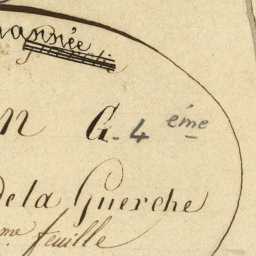 année
n G. 4 éme
de la Guerche
me feuille